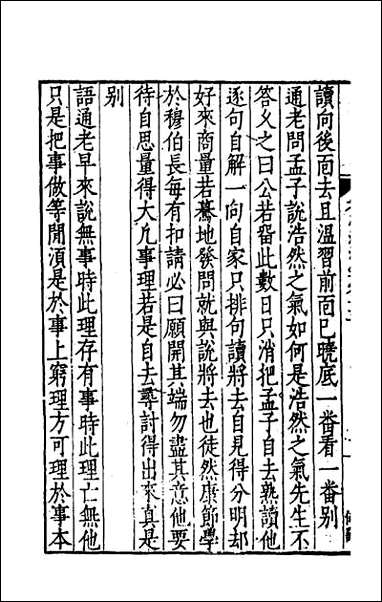 讀向後面去且溫習前面已曉底一番看一番别
通老問孟子說浩然之氣如何是浩然之氣先生不
答久之曰公若留此數日只消把孟子自去熟讀他
逐句自解一向自家只排句讀將去自見得分明却
好來商量若驀地發問就與說將去也徒然康節學
於穆伯長每有和請必曰願開其端勿盡其意他要
待自思量得大凡事理若是自去尋討得出來真是
别
語通老早來說無事時此理存有事時此理亡無他
只是把事做等閒須是於事上窮理方可理於事本